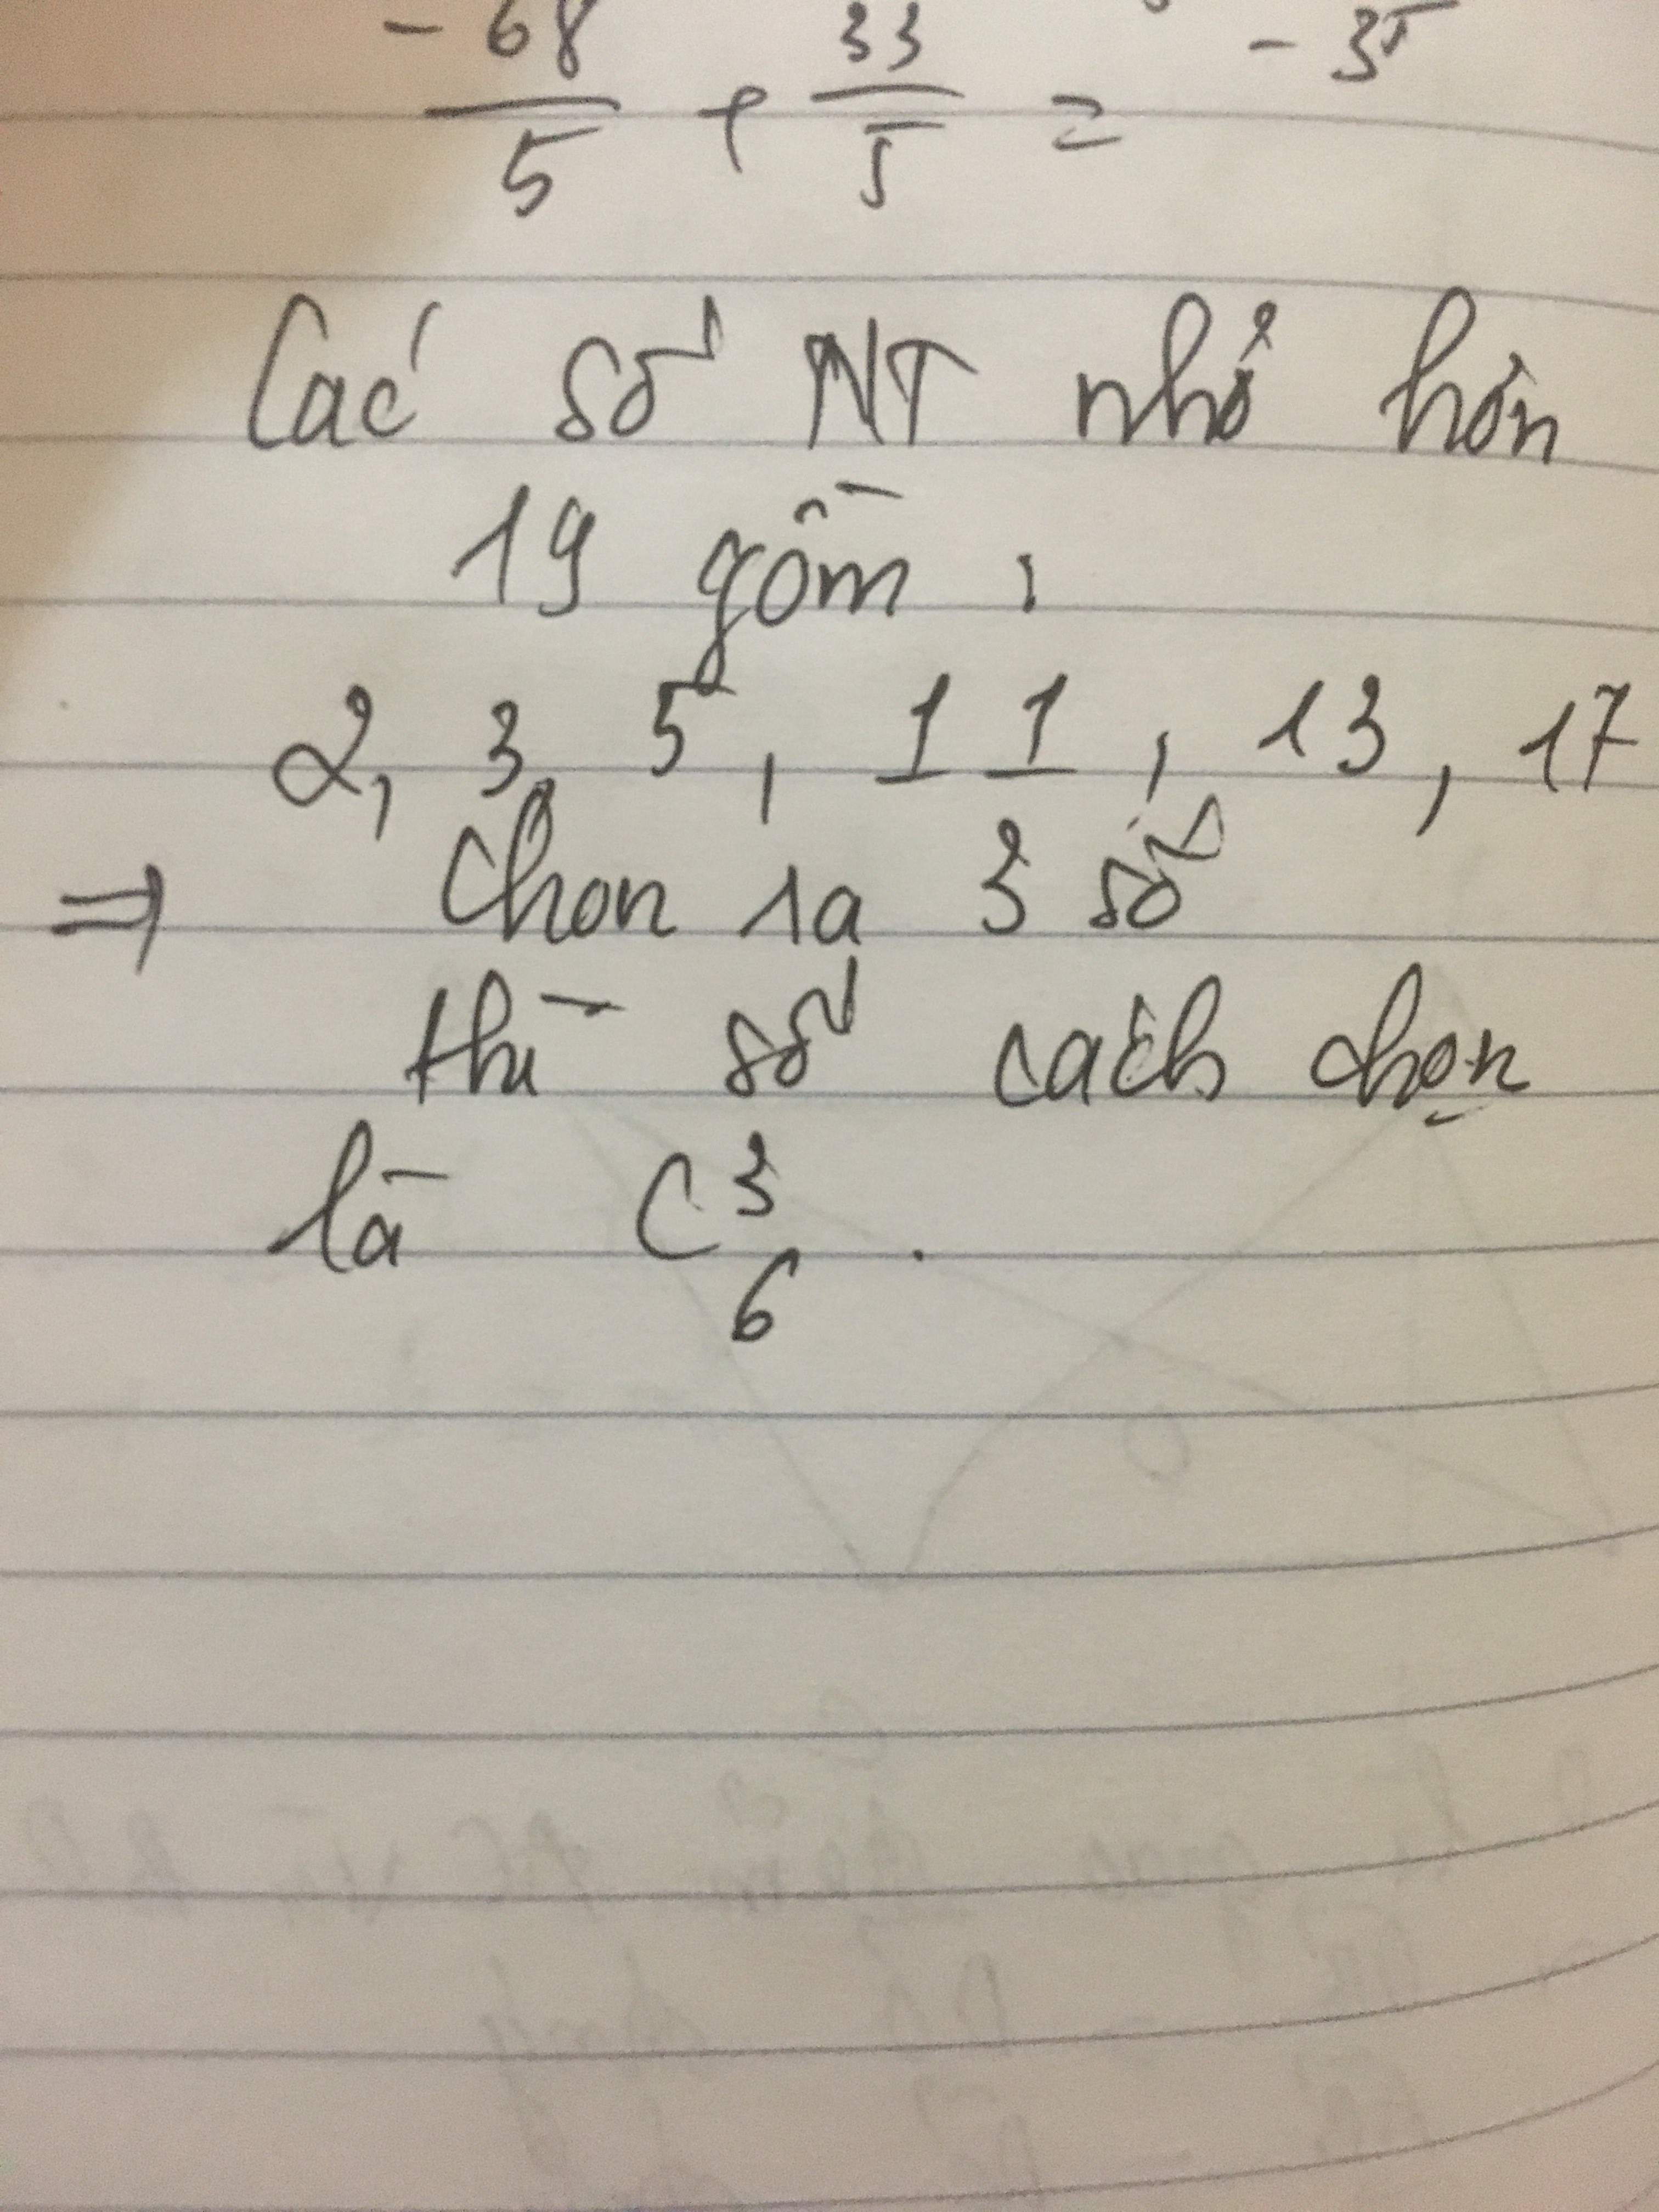 -68/5 + 33/5 = -35
Các số NT nhỏ hơn
19 gồm :
2, 3, 5, 11, 13, 17
⇒ Chọn ra 3 số
thì số cách chọn
là C³₆.